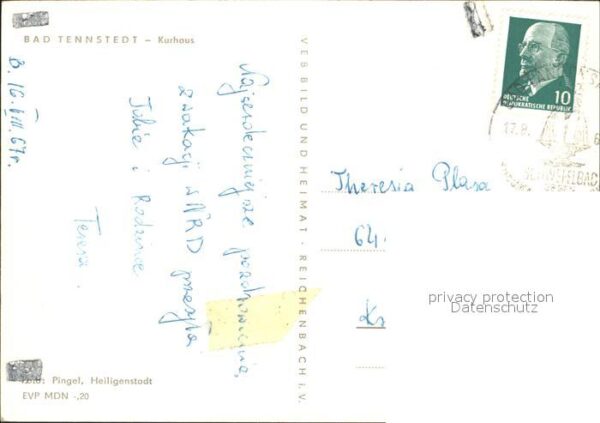 BAD TENNSTEDT – Kurhaus
B. 16. VIII. 67r.
Najserdeczniejsze pozdrowienia
z wakacji w NRD przesyła
Julie i Rodzince
Teresa.
VEB BILD UND HEIMAT · REICHENBACH i. V.
Foto: Pingel, Heiligenstadt
EVP MDN -,20
DEUTSCHE
DEMOKRATISCHE REPUBLIK
10
17.8.
SCHWEFELBAD
Theresia Plasa
64.
privacy protection
Datenschutz